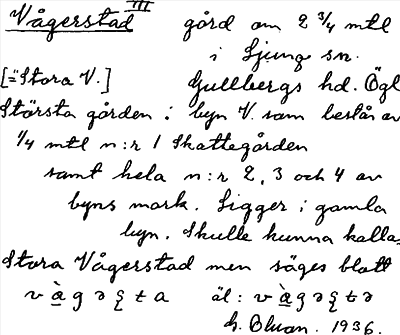 Vågerstad III gård om 2 3/4 mtl
i Ljung sn.
[= Stora V.] Gullbergs hd. Ögl
Största gården i byn V. som består av
1/4 mtl n:r 1 Skattegården
samt hela n:r 2, 3 och 4 av
byns mark. Ligger i gamla
byn. Skulle kunna kallas
Stora Vågerstad men säges blott